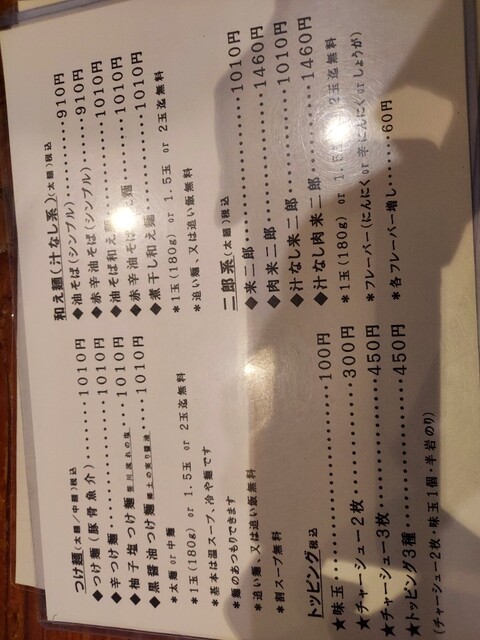 つけ麺(太麺/中麺)税込
◆つけ麺(豚骨魚介)‥‥‥1010円
◆辛つけ麺‥‥‥‥‥‥‥1010円
◆柚子塩つけ麺 笹川流れの塩‥‥‥1010円
◆黒醤油つけ麺 郷土の実り醤油‥‥1010円
*太麺 or 中麺
*1玉(180g) or 1.5玉 or 2玉迄無料
*基本は温スープ、冷や麺です
*麺のあつもりできます
*追い麺、又は追い飯無料
*割スープ無料
トッピング税込
★味玉‥‥‥‥‥‥‥‥‥100円
★チャーシュー2枚‥‥‥‥300円
★チャーシュー3枚‥‥‥‥450円
★トッピング3種‥‥‥‥‥450円
(チャーシュー2枚・味玉1個・半岩のり)
和え麺(汁なし系)(太麺)税込
◆油そば(シンプル)‥‥‥910円
◆赤辛油そば(シンプル)‥‥910円
◆油そば和え麺‥‥‥‥1010円
◆赤辛油そば和え麺‥‥1010円
◆煮干し和え麺‥‥‥‥1010円
*1玉(180g) or 1.5玉 or 2玉迄無料
*追い麺、又は追い飯無料
二郎系(太麺)税込
◆来二郎‥‥‥‥‥‥‥1010円
◆肉来二郎‥‥‥‥‥‥1460円
◆汁なし来二郎‥‥‥‥1010円
◆汁なし肉来二郎‥‥‥1460円
*1玉(180g) or 1.5玉 or 2玉迄無料
*フレーバー(にんにく or 辛にんにく or しょうが)
*各フレーバー増し‥‥‥‥60円